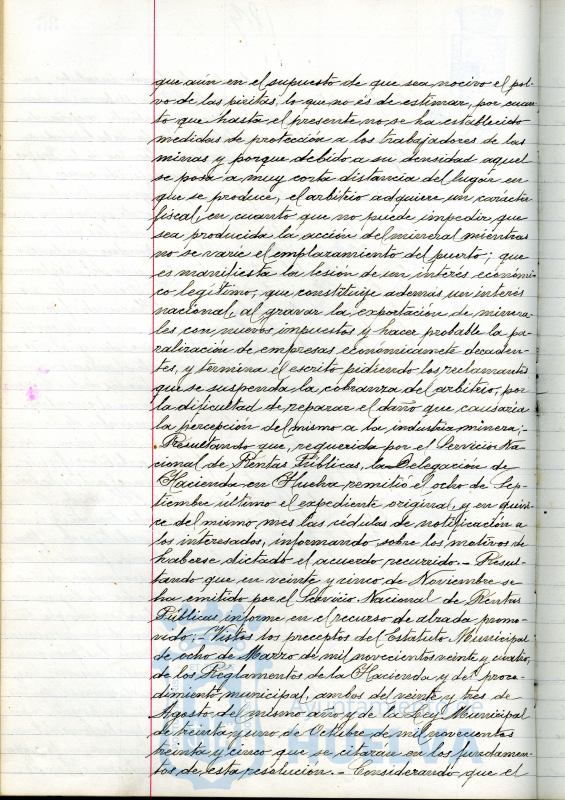 que aún en el supuesto de que sea nocivo el pol-
vo de las piritas, lo que no és de estimar, por cuan-
to que hasta el presente no se ha establecido
medidas de protección a los trabajadores de las
minas y porque debido a su densidad aquel
se posa a muy corta distancia del lugar en
que se produce, el arbitrio adquiere un carácter
fiscal, en cuanto que no puede impedir que
sea producida la acción del mineral mientras
no se varíe el emplazamiento del puerto; que
es manifiesta la lesión de un interés económi-
co legítimo, que constituye además un interés
nacional, al gravar la exportación de minera-
les con nuevos impuestos y hacer probable la pa-
ralización de empresas económicamente decaden-
tes, y termina el escrito pidiendo los reclamantes
que se suspenda la cobranza del arbitrio, por
la dificultad de reparar el daño que causaría
la percepción del mismo a la industria minera;-
Resultando que, requerida por el Servicio Na-
cional de Rentas Públicas, la Delegación de
Hacienda en Huelva remitió el ocho de Sep-
tiembre último el expediente original, y en quin-
ce del mismo mes las cédulas de notificación a
los interesados, informando sobre los motivos de
haberse dictado el acuerdo recurrido.- Resul-
tando que en veinte y cinco de Noviembre se
ha emitido por el Servicio Nacional de Rentas
Públicas informe en el recurso de alzada promo-
vido;- Vistos los preceptos del Estatuto Municipal
de ocho de Marzo de mil novecientos veinte y cuatro,
de los Reglamentos de la Hacienda y del proce-
dimiento municipal, ambos del veinte y tres de
Agosto del mismo año y de la Ley Municipal
de treinta y uno de Octubre de mil novecientos
treinta y cinco que se citarán en los fundamen-
tos de esta resolución.- Considerando que el
Ayuntamiento de
HUELVA